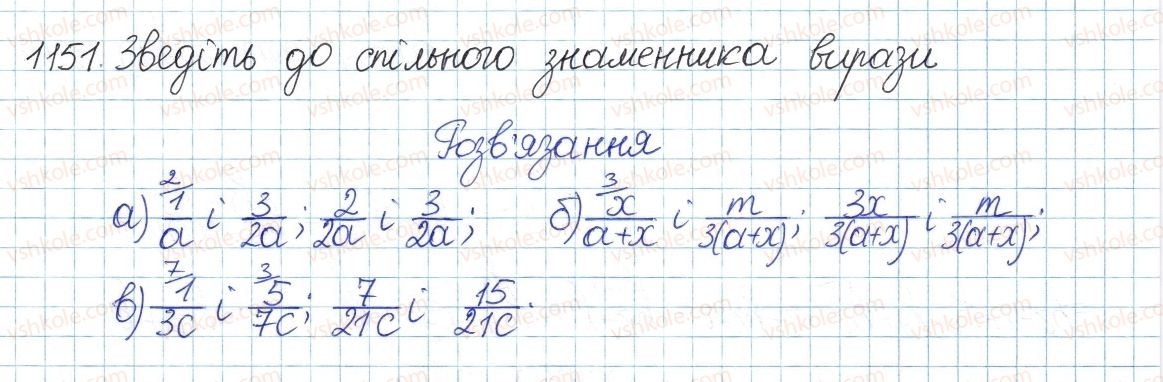 1151. Зведіть до спільного знаменника вирази
Розв'язання
а) 2/ 1/a і 3/2a; 2/2a і 3/2a; б) 3/ x/a+x і m/3(a+x); 3x/3(a+x) і m/3(a+x);
в) 7/ 1/3c і 3/ 5/7c; 7/21c і 15/21c.